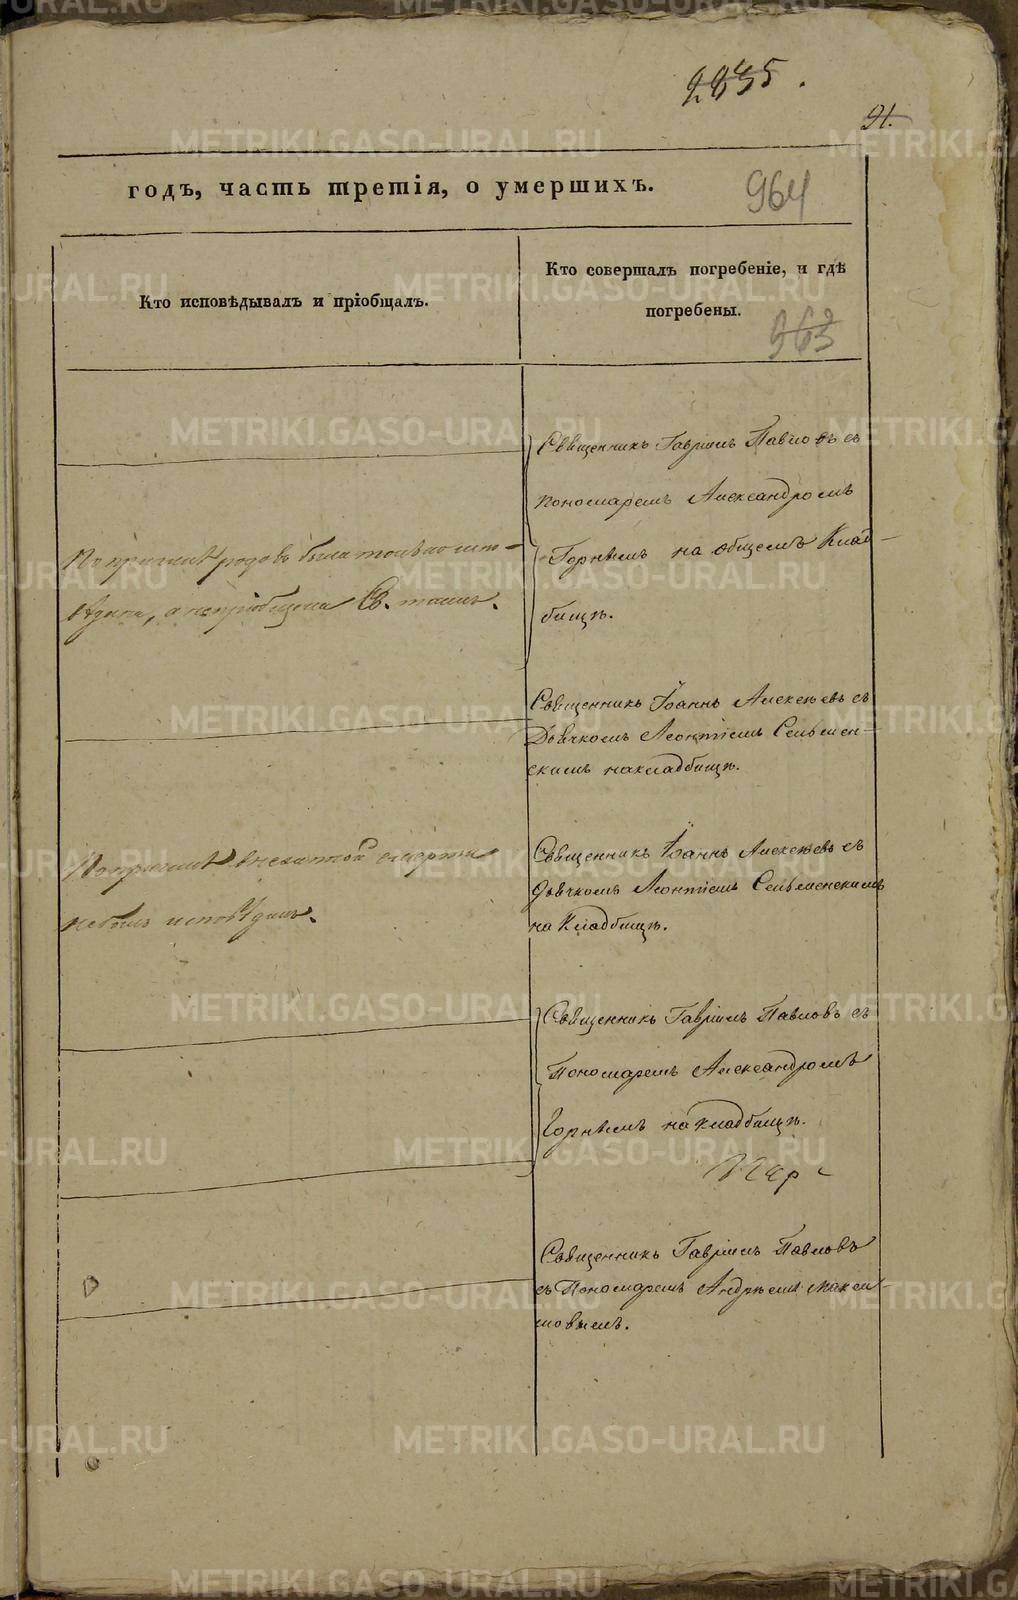 2845.
91.
годъ, часть третія, о умершихъ.
964
Кто исповѣдывалъ и пріобщалъ.
Кто совершалъ погребеніе, и гдѣ
погребены.
963
Священникъ Гавріилъ Павловъ съ
пономаремъ Александромъ
Горнымъ на общемъ Клад-
бищѣ.
По причинѣ родовъ была только испо-
вѣдана, а непріобщена Св. таинъ.
Священникъ Іоаннъ Алексѣевъ съ
Дьячкомъ Леонтіемъ Сельмен-
скимъ на кладбищѣ.
По причинѣ внезапной смерти
не былъ исповѣданъ.
Священникъ Іоаннъ Алексѣевъ съ
дьячкомъ Леонтіемъ Сельменскимъ
на Кладбищѣ.
Священникъ Гавріилъ Павловъ съ
Пономаремъ Александромъ
Горнымъ на кладбищѣ.
Священникъ Гавріилъ Павловъ
съ Пономаремъ Андрѣемъ Макси-
мовымъ.
METRIKI.GASO-URAL.RU